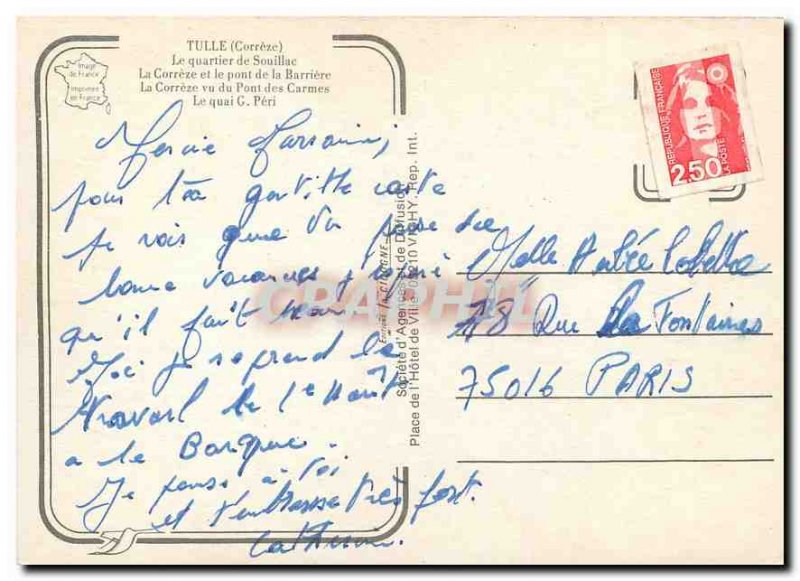 TULLE (Corrèze)
Le quartier de Souillac
La Corrèze et le pont de la Barrière
La Corrèze vu du Pont des Carmes
Le quai G. Péri
Image
de France
Imprimée
en France
pour ta gentille carte
Je vois que tu passe de
bonne vacances,
qu'il fait beau.
Moi je reprend le
travail le 1er Août
a la Banque.
Je pense à toi
et t'embrasse très fort.
Catherine.
Société d'Agences et de Diffusion
Place de l'Hôtel de Ville 03210 VICHY. Rep. Int.
RÉPUBLIQUE FRANÇAISE
LA POSTE
2,50
Melle
18 Rue La Fontaine
75016 PARIS
CPAPHIL